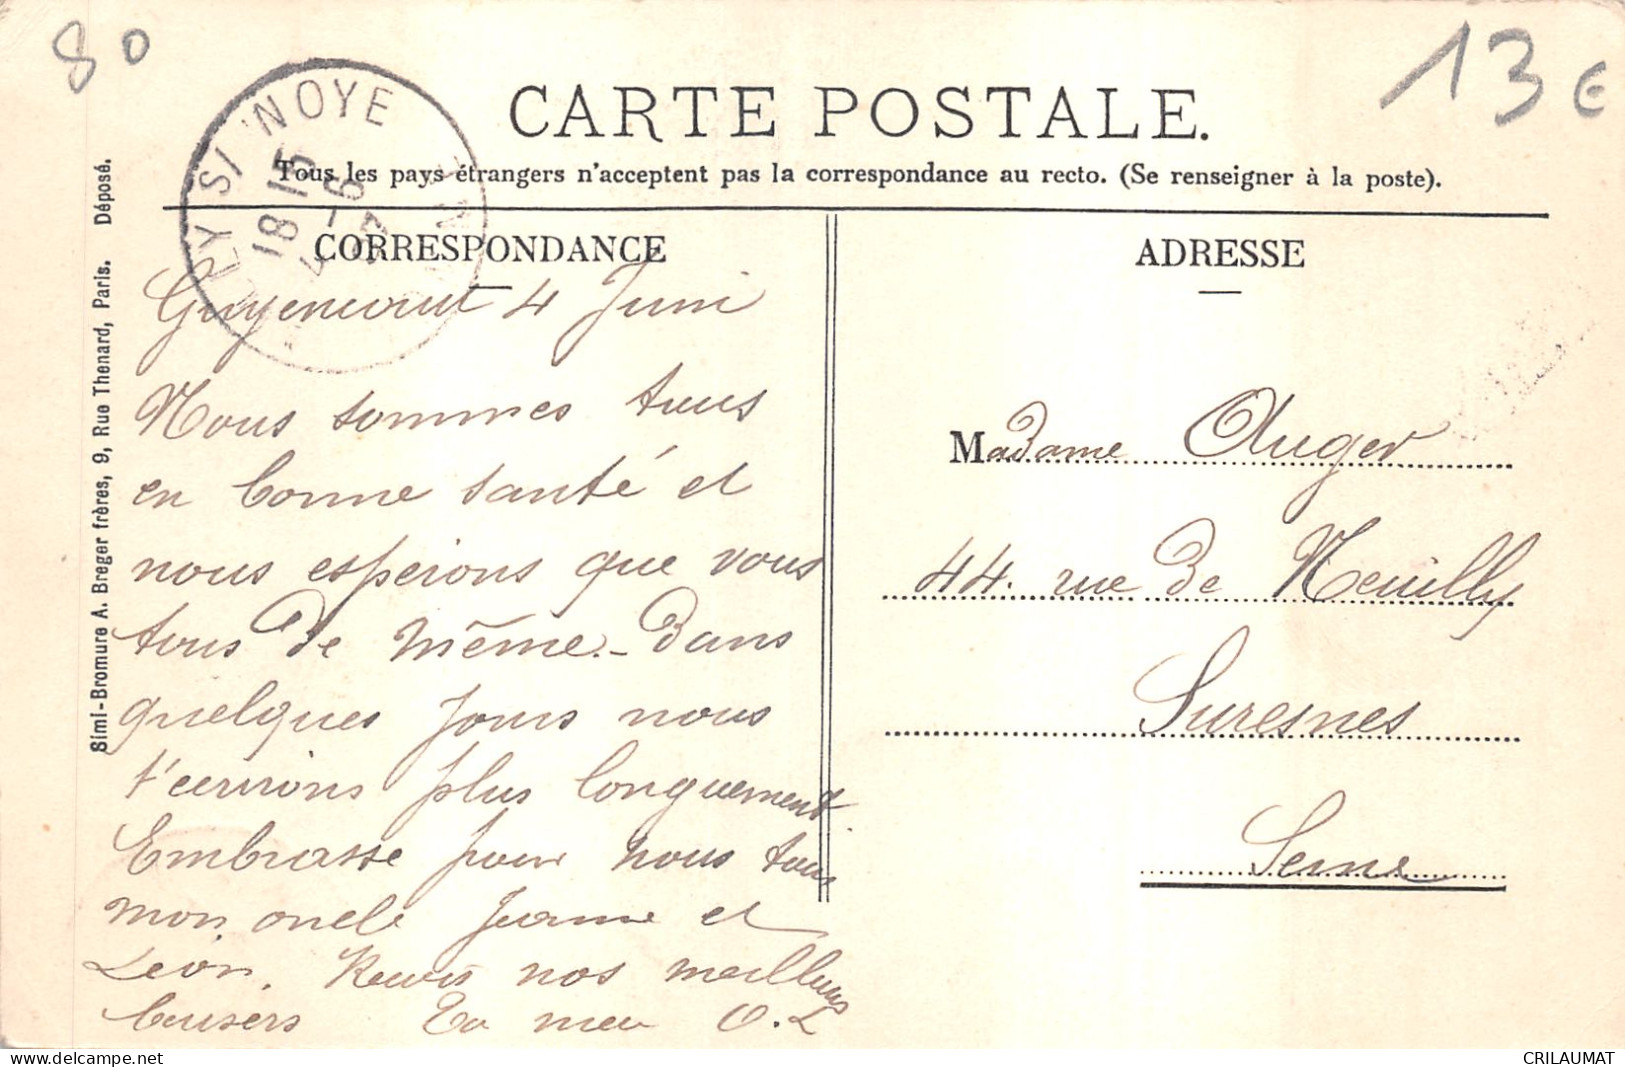 80
13 €
CARTE POSTALE.
Tous les pays étrangers n'acceptent pas la correspondance au recto. (Se renseigner à la poste).
EY S/ NOYE
18 15
4 - 6
CORRESPONDANCE
ADRESSE
Simi-Bromure A. Breger frères, 9, Rue Thenard, Paris. Déposé.
Guyencourt 4 Juin
Nous sommes tous
en bonne santé et
nous espérons que vous
tous de même. - Dans
quelques jours nous
t'écrirons plus longuement
Embrasse pour nous tous
mon oncle Jeanne et
Léon. Reçois nos meilleurs
baisers Ta O.L
Madame Auger
44. rue de Neuilly
Suresnes
Seine
delcampe.net
CRILAUMAT